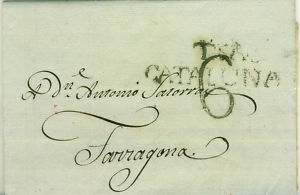 CATALUÑA
6
A Dn. Antonio Satorras
Tarragona.